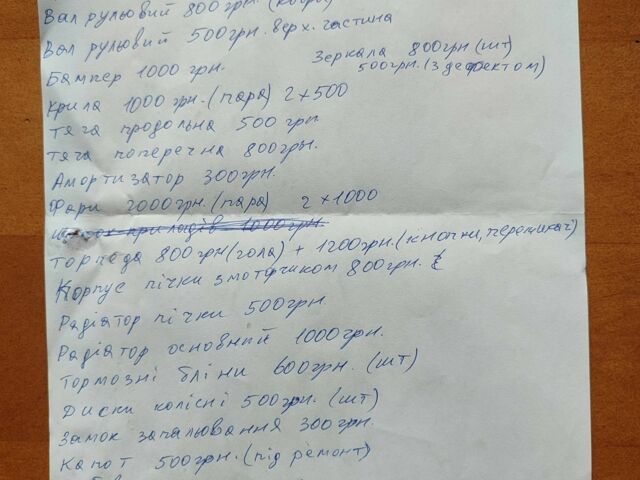 Вал рульовий 800грн.
Вал рульовий 500грн. верх. частина
Бампер 1000 грн.
Зеркала 800грн (шт)
500грн. (з дефектом)
Крила 1000грн. (пара) 2×500
Тяга продольна 500 грн.
Тяга поперечна 800грн.
Амортизатор 300грн.
Фари 2000грн. (пара) 2×1000
приладів 1000грн
Торпеда 800грн (гола) + 1200грн. (кнопки, перемикачі)
Корпус пічки з моторчиком 800грн.
Радіатор пічки 500грн.
Радіатор основний 1000грн.
Тормозні бліни 600грн. (шт)
Диски колісні 500грн. (шт)
Замок запалювання 300грн.
Капот 500грн. (під ремонт)